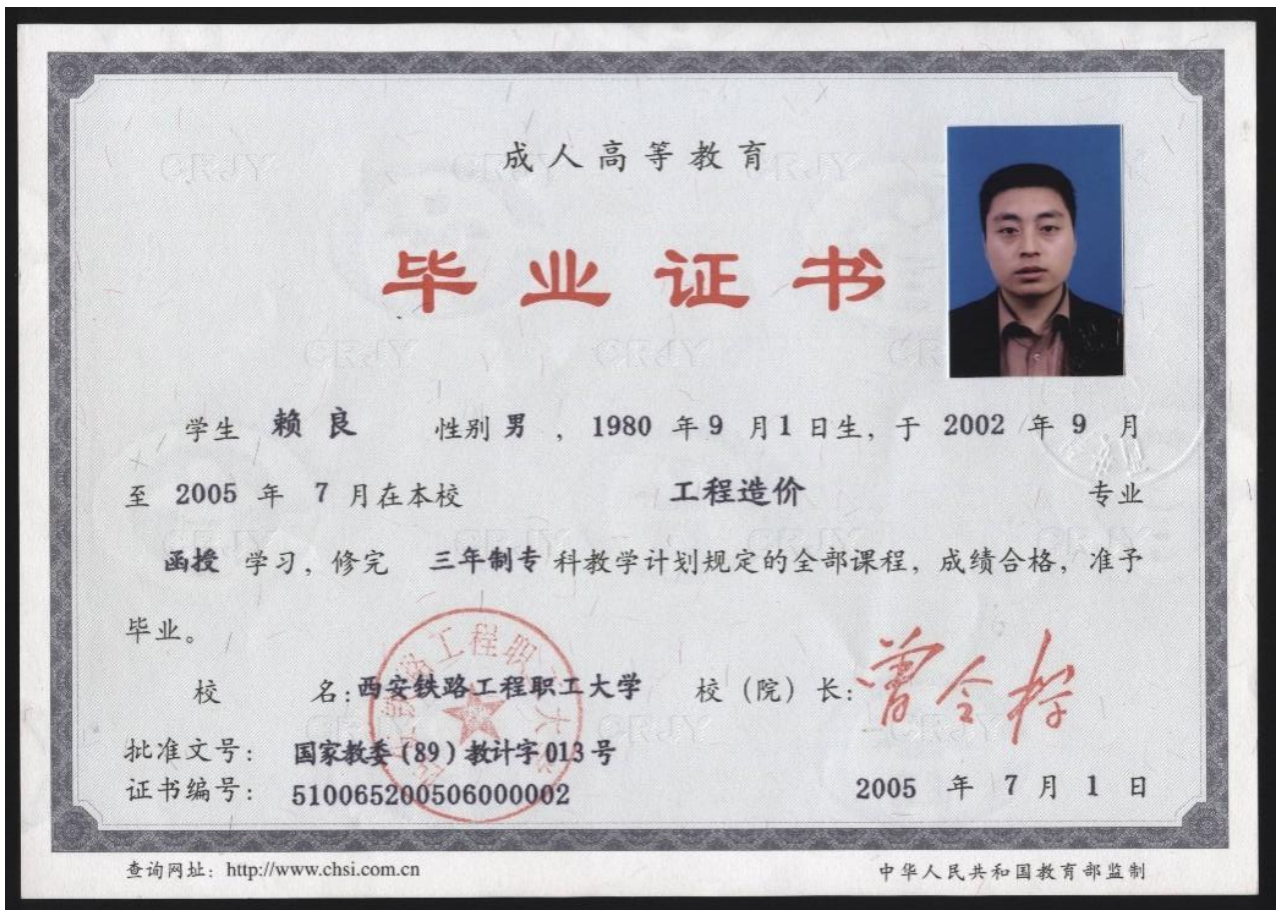 成人高等教育
毕业证书
学生 赖良 性别 男 , 1980 年 9 月 1 日生, 于 2002 年 9 月
至 2005 年 7 月在本校 工程造价 专业
函授 学习, 修完 三年制专 科教学计划规定的全部课程, 成绩合格, 准予
毕业。
校 名: 西安铁路工程职工大学 校 (院) 长:
批准文号: 国家教委 (89) 教计字 013 号
证书编号: 510065200506000002
2005 年 7 月 1 日
查询网址: http://www.chsi.com.cn
中华人民共和国教育部监制